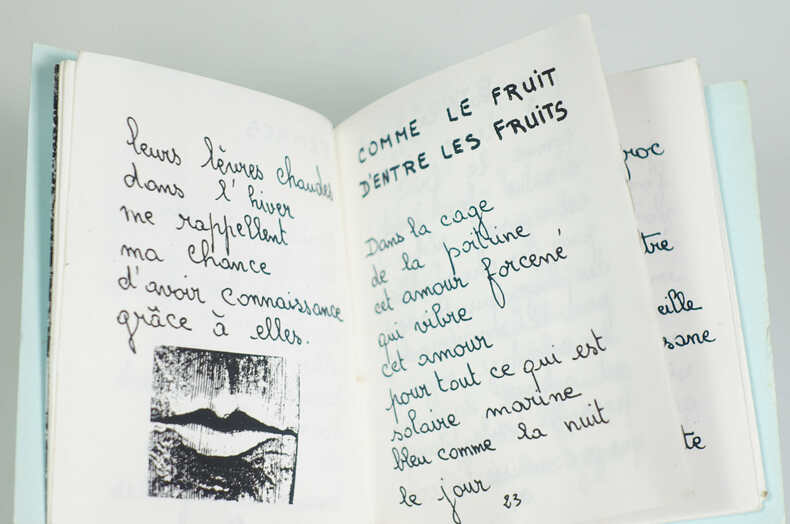 leurs lèvres chaudes
dans l'hiver
me rappellent
ma chance
d'avoir connaissance
grâce à elles.
COMME LE FRUIT
D'ENTRE LES FRUITS
Dans la cage
de la poitrine
cet amour forcené
qui vibre
cet amour
pour tout ce qui est
solaire marine
bleu comme la nuit
le jour
23